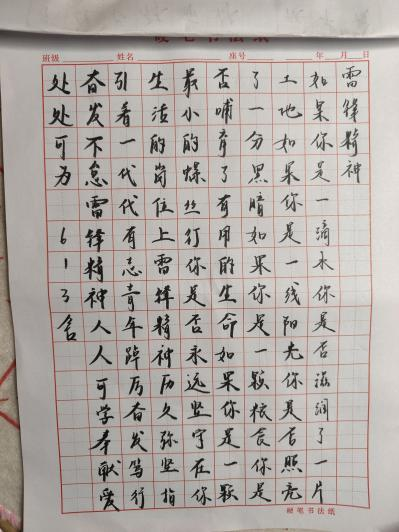 硬笔书法纸
班级 姓名 座号 年 月 日
雷锋精神
如果你是一滴水你是否滋润了一片
土地如果你是一线阳光你是否照亮
了一分黑暗如果你是一颗粮食你是
否哺育了有用的生命如果你是一颗
最小的螺丝钉你是否永远坚守在你
生活的岗位上雷锋精神历久弥坚指
引着一代代有志青年踔厉奋发笃行
奋发不怠雷锋精神人人可学奉献爱
处处可为613
硬笔书法纸